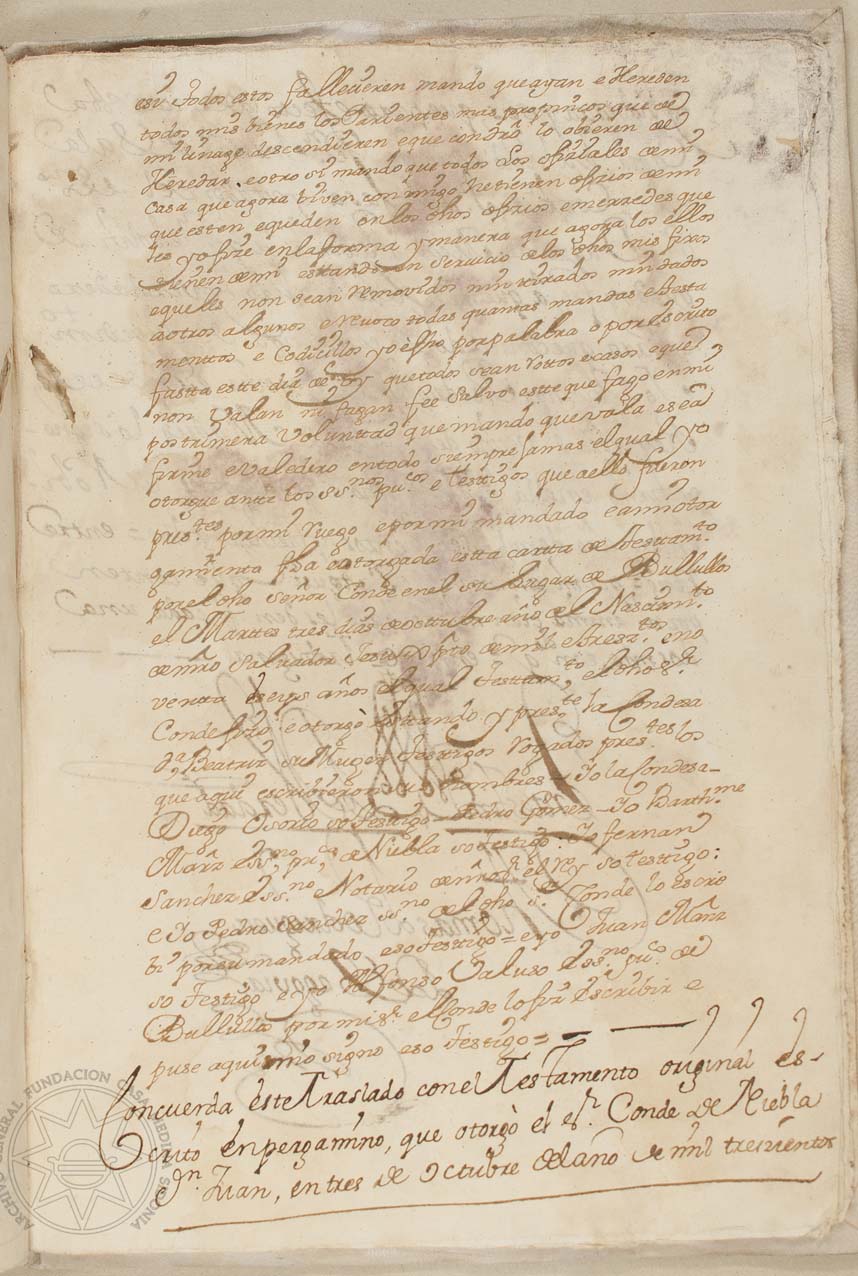 esi todos estos falleçieren mando que ayan e Hereden
todos mis bienes los Parientes mas propincos que de
mi linage descendieren e que con dro lo obieren de
Heredar. e otro si mando que todos los ofiçiales de mi
Casa que agora viven conmigo he tienen ofiçios de mi
que esten e queden en los dhos ofiçios e merzedes que
les yo fize en la forma y manera que agora los ellos
tienen de mi estando en servicio de los dhos mis fixos
e que les non sean removidos nin tirados nin dados
a otros algunos e Revoco todas quantas mandas e testa
menttos e Codiçillos yo e fho por palabra o por escrito
fastta este dia de oy que todos sean rottos e casos e que
non valan ni fagan fee salvo estte que fago en mi
postrimera voluntad que mando que vala e sea
firme e valedero en todo siempre jamas el qual yo
otorgue antte los ss.nos pu.cos e testtigos que a ello fueron
pres.tes por mi ruego e por mi mandado e a mi otor
gamienta fha e otorgada estta cartta de testtam.to
por el dho señor Conde en el su lugar de Bullullos
el Marttes tres dias de octtubre año del Nasçim.to
de nro Salvador Jesu xpto de mill e trezi.tos e no
ventta e seys años el qual testtam.to el dho s.r
Conde fizo e otorgò estando y pres.te la Condesa
d.a Beatriz su Muger testtigos rogados pres.tes los
que aqui escribieron sus nombres = Yo la Condesa =
Diego Osorio so testtigo = Pedro Gomez = Yo Barth.me
Mârz ess.no pu.co de Niebla so testigo: Yo fernan
Sanchez ess.no Notario de nro s.r el Rey so testtigo:
e Yo Pedro Sanchez ss.no del dho s.r Conde lo escre
bi por su mandado e so testigo = e yo Juan Mârz
so testigo e yo Alfonso ess.no pu.co de
Bullullos por mi s.r el Conde lo fize escribir e
puse aqui mio signo e so testigo =
Concuerda este traslado con el Testamento original es-
crito en pergamino, que otorgò el s.r Conde de Niebla
d.n Juan, en tres de octubre del año de mil trescientos
ARCHIVO GENERAL FUNDACION CASA MEDINA SIDONIA